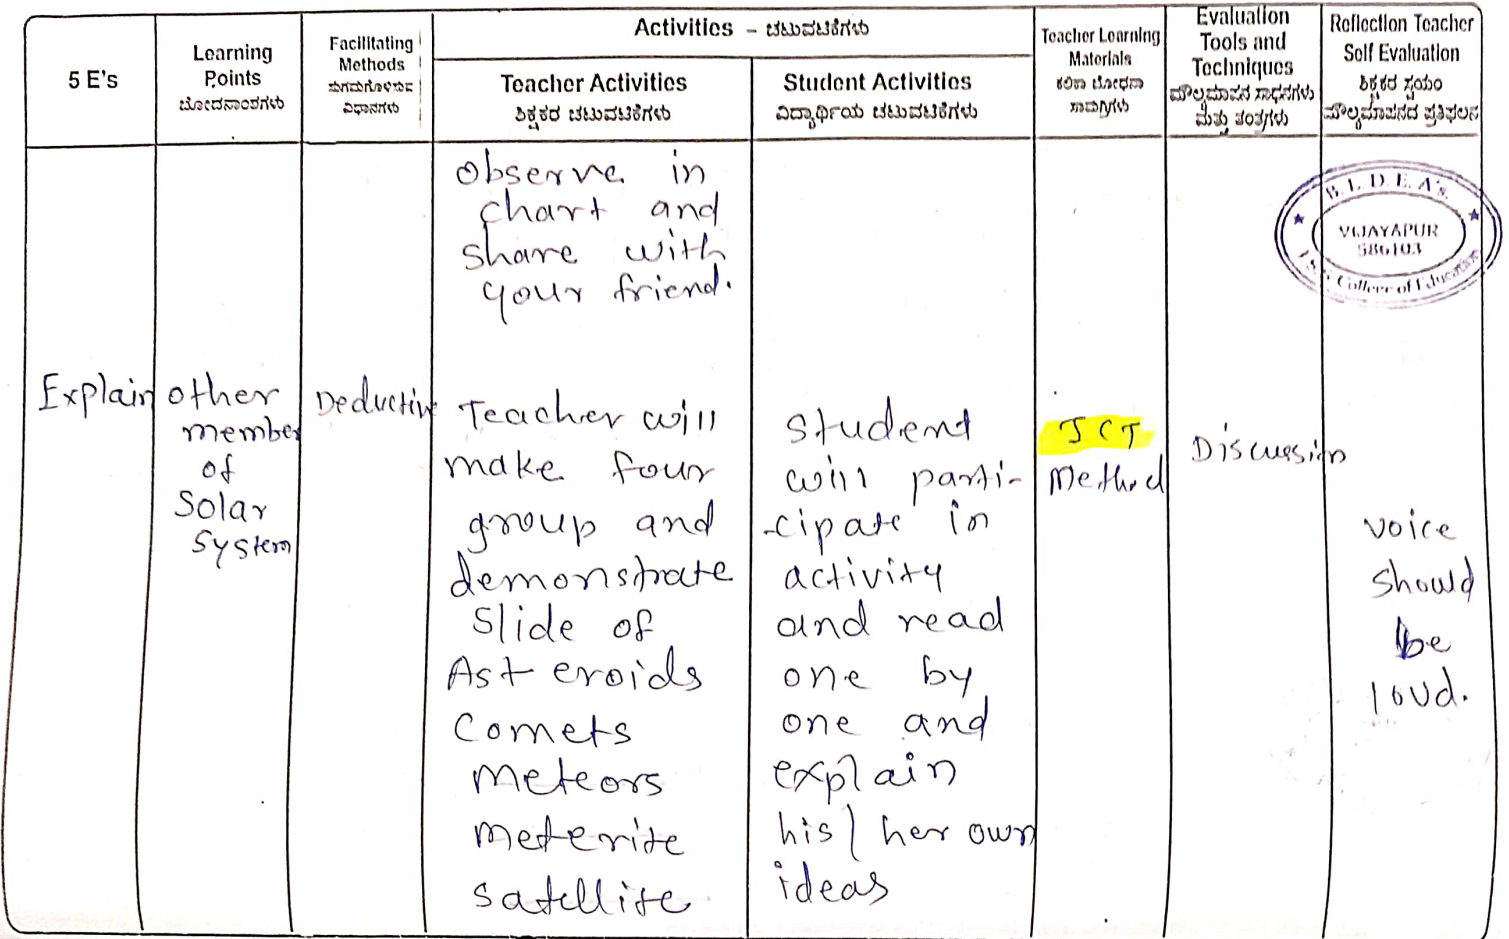 5 E's
Learning
Points
ಬೋದನಾಂಶಗಳು
Facilitating
Methods
ಸುಗಮಗೊಳಿಸುವ
ವಿಧಾನಗಳು
Activities – ಚಟುವಟಿಕೆಗಳು
Teacher Activities
ಶಿಕ್ಷಕರ ಚಟುವಟಿಕೆಗಳು
Student Activities
ವಿದ್ಯಾರ್ಥಿಯ ಚಟುವಟಿಕೆಗಳು
Teacher Learning
Materials
ಕಲಿಕಾ ಬೋಧನಾ
ಸಾಮಗ್ರಿಗಳು
Evaluation
Tools and
Techniques
ಮೌಲ್ಯಮಾಪನ ಸಾಧನಗಳು
ಮತ್ತು ತಂತ್ರಗಳು
Reflection Teacher
Self Evaluation
ಶಿಕ್ಷಕರ ಸ್ವಯಂ
ಮೌಲ್ಯಮಾಪನದ ಪ್ರತಿಫಲನ
observe in
chart and
share with
your friend.
B. L. D. E. A's.
VIJAYAPUR
586103
College of Education
Explain
other
member
of
Solar
System
Deductive
Teacher will
make four
group and
demonstrate
slide of
Asteroids
Comets
Meteors
meterite
satellite
Student
will parti-
-cipate in
activity
and read
one by
one and
explain
his/ her own
ideas
ICT
Method
Discussion
Voice
should
be
loud.